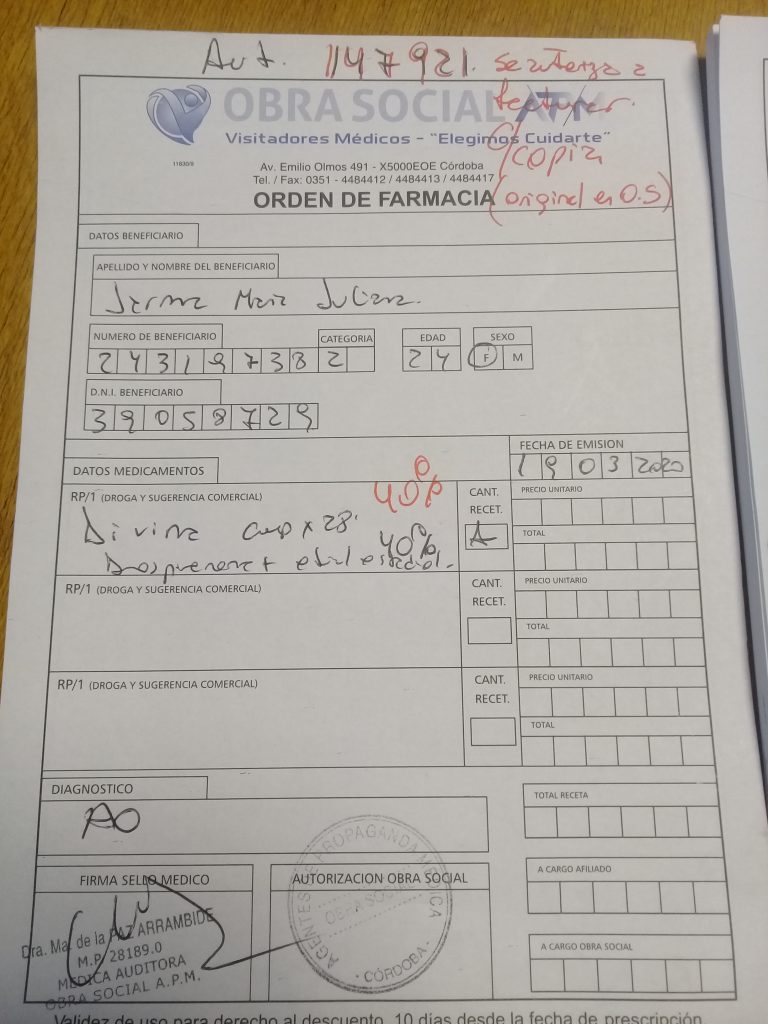 Aut. 1147921. se autoriza a
facturar.
OBRA SOCIAL APM
Visitadores Médicos - "Elegimos Cuidarte"
c/copia
11830/8
Av. Emilio Olmos 491 - X5000EOE Córdoba
Tel. / Fax: 0351 - 4484412 / 4484413 / 4484417
ORDEN DE FARMACIA (original en O.S)
DATOS BENEFICIARIO
APELLIDO Y NOMBRE DEL BENEFICIARIO
Maria Juliana.
NUMERO DE BENEFICIARIO CATEGORIA EDAD SEXO
24319738 2 24 F M
D.N.I. BENEFICIARIO
39058729
FECHA DE EMISION
19 03 2020
DATOS MEDICAMENTOS
40%
RP/1 (DROGA Y SUGERENCIA COMERCIAL) CANT. RECET. PRECIO UNITARIO
Divina comp x 28.
40%
TOTAL
Drospirenona + etinilestradiol.
RP/1 (DROGA Y SUGERENCIA COMERCIAL) CANT. RECET. PRECIO UNITARIO
TOTAL
RP/1 (DROGA Y SUGERENCIA COMERCIAL) CANT. RECET. PRECIO UNITARIO
TOTAL
DIAGNOSTICO
AO
TOTAL RECETA
FIRMA SELLO MEDICO
AUTORIZACION OBRA SOCIAL
A CARGO AFILIADO
Dra. Ma. de la PAZ ARRAMBIDE
M.P. 28189.0
MEDICA AUDITORA
OBRA SOCIAL A.P.M.
AGENTES DE PROPAGANDA MEDICA
OBRA SOCIAL
· CÓRDOBA ·
A CARGO OBRA SOCIAL
Validez de uso para derecho al descuento, 10 días desde la fecha de prescripción